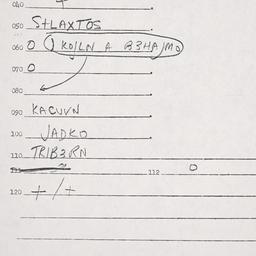 040
050 S+LAXTOS
060 O 1 KOJLN A B3HAJMO
070 O
080
090 KACUVN
100 JADKO
110 TRIB3RN
112 O
120 + / +